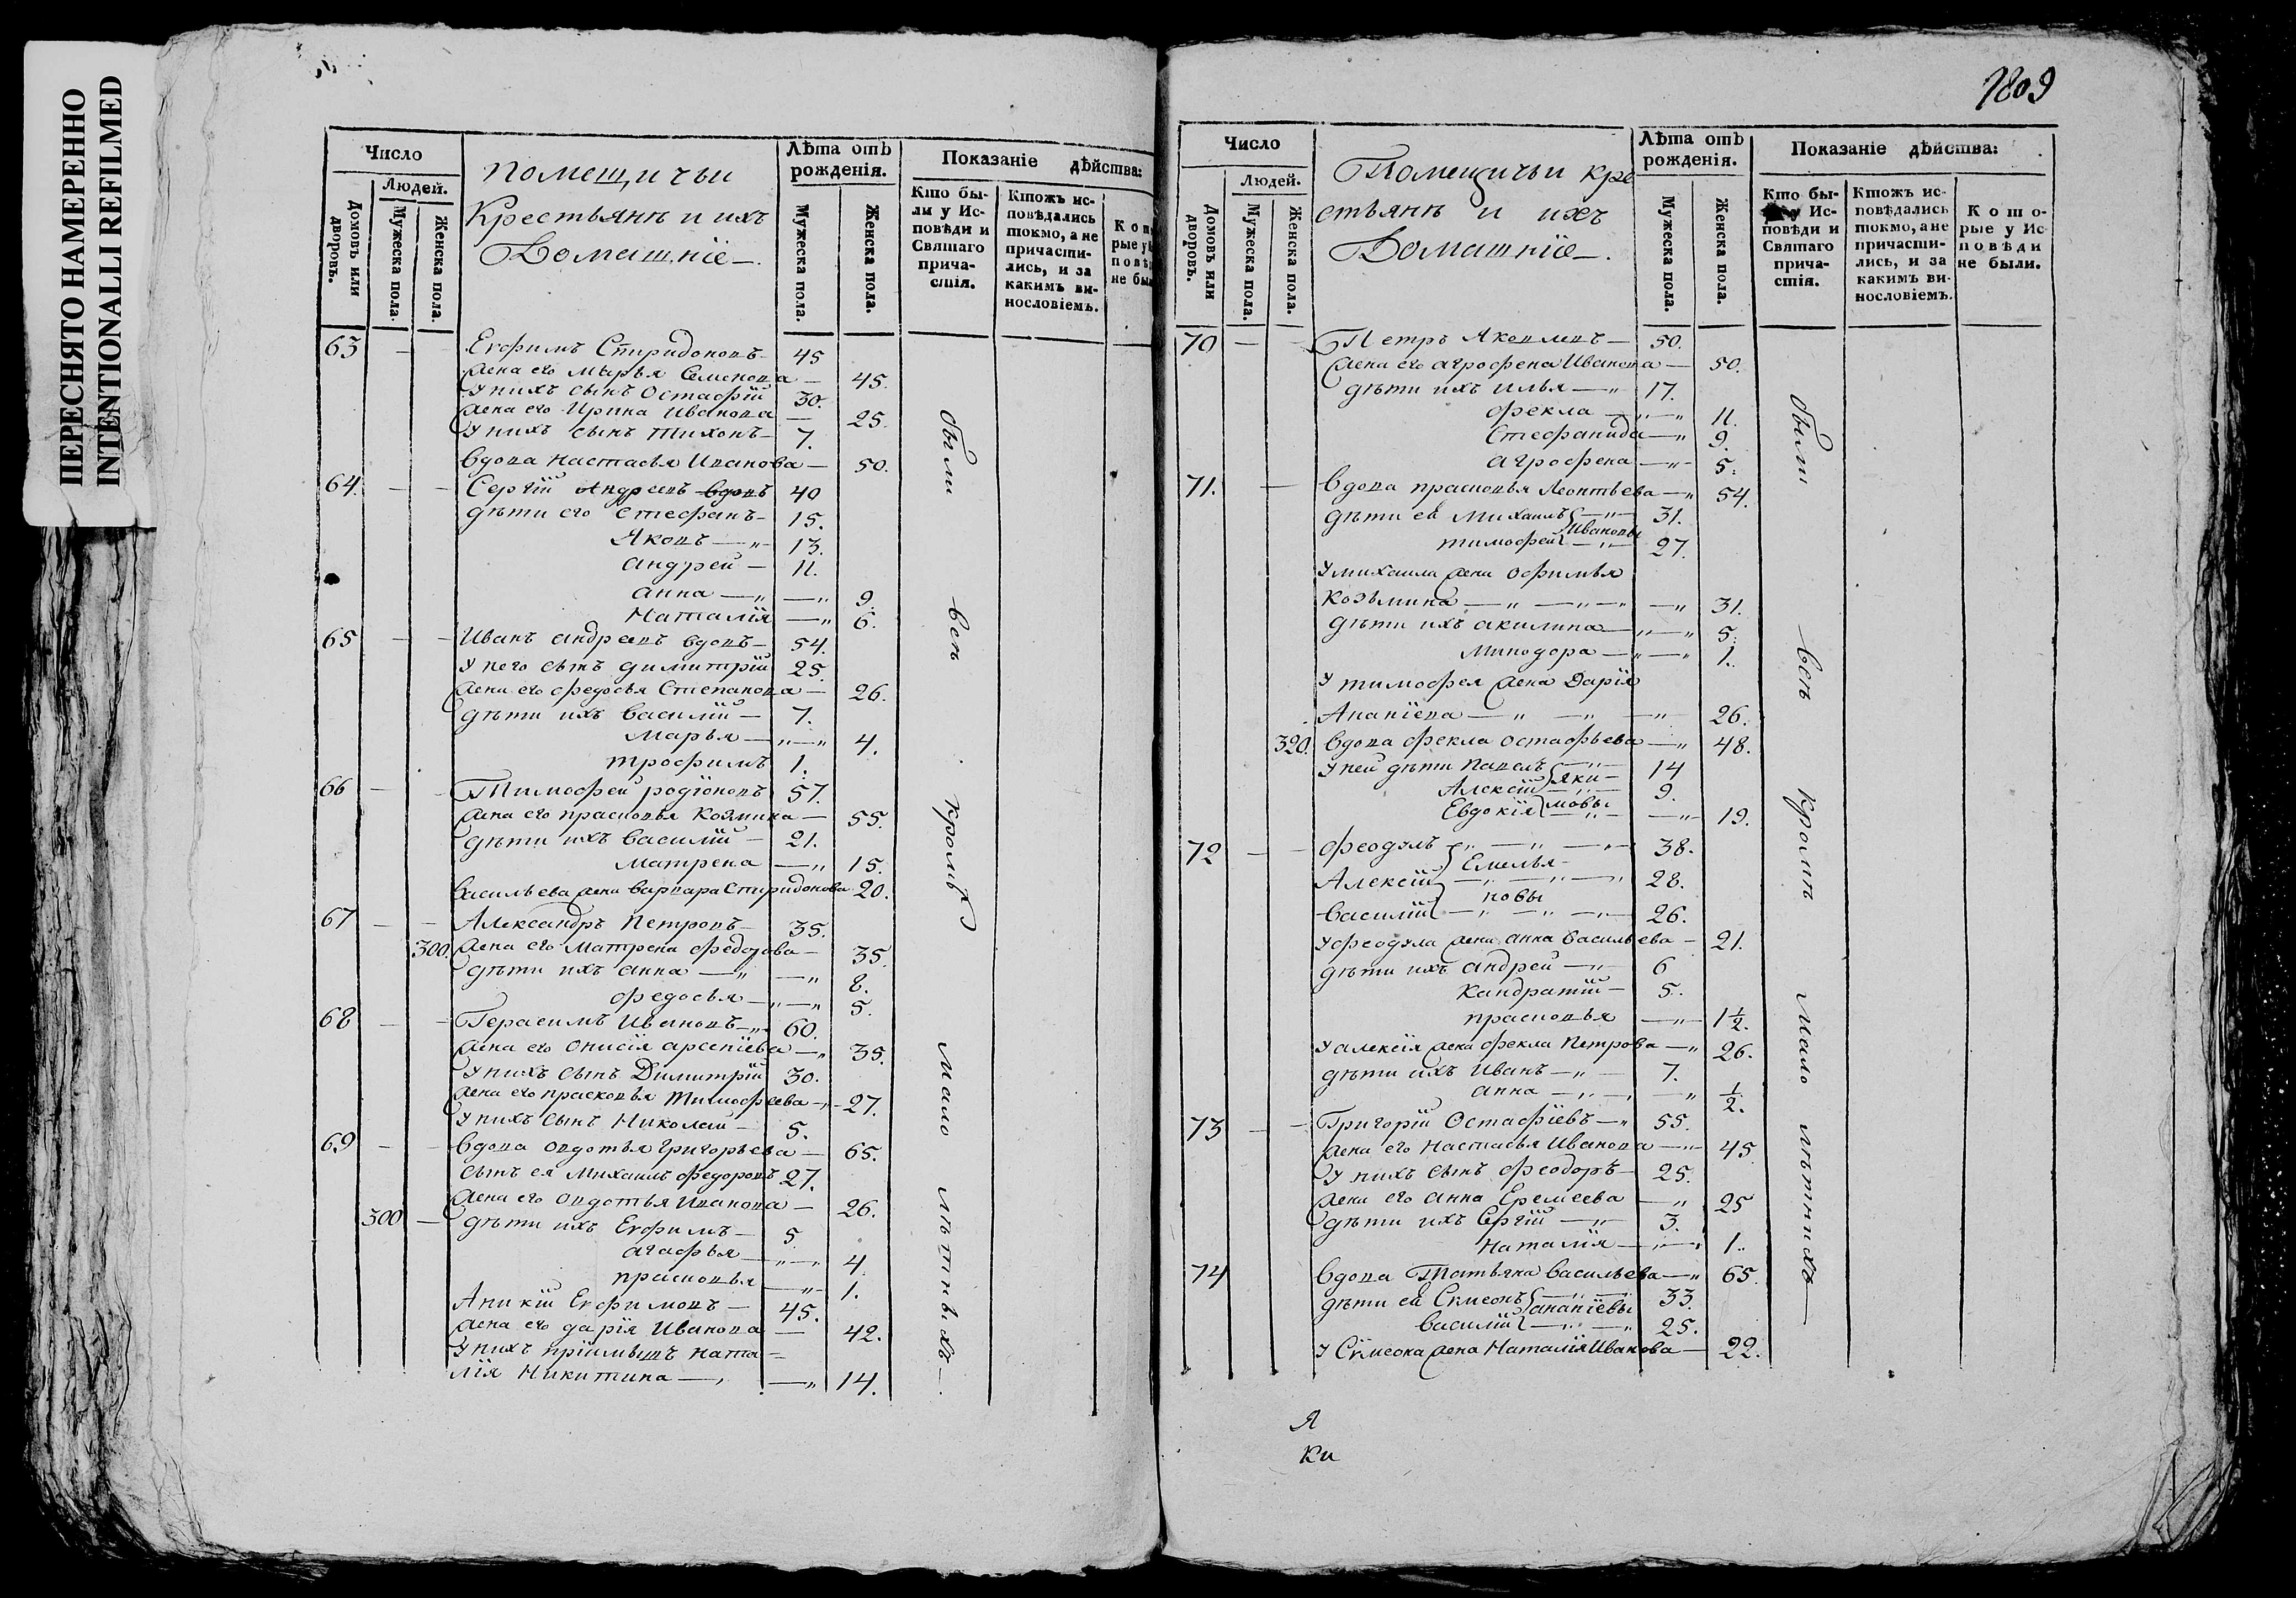 ПЕРЕСНЯТО НАМЕРЕННО
INTENTIONALLI REFILMED
Число
Людей.
Домовъ или дворовъ.
Мужеска пола.
Женска пола.
помещичьи
Крестьянъ и ихъ
Домашнїе
Лѣта отъ рожденїя.
Мужеска пола.
Женска пола.
Показанїе дѣйства:
Кто бы-
ли у Ис-
повѣди и
Святаго
прича-
стїя.
Ктожъ ис-
повѣдались
токмо, а не
причасти-
лись, и за
какимъ ви-
нословїемъ.
63 — Евфимъ Спиридоновъ — 45
жена его Марья Семенова — 45.
У нихъ сынъ Остафїй 30.
жена его Ирина Иванова — 25.
У нихъ сынъ Тихонъ — 7.
вдова Настасья Иванова — 50.
64. — — Сергїй Андреевъ вдовъ 40
дѣти его Стефанъ — 15.
Яковъ — „ 13.
андрей — 11.
анна — „ — „ 9.
Наталїя — „ 6.
65 — — Иванъ андреевъ вдовъ — 54.
У него сынъ димитрїй 25.
жена его федосья Степанова — 26.
дѣти ихъ василїй — 7.
марья — „ — „ 4.
трофимъ 1.
66 — Тимофей родїоновъ 57.
жена его прасковья Козмина — 55.
дѣти ихъ василїй — 21.
матрена — „ 15.
васильева жена варвара Спиридонова 20.
67 — — Александръ Петровъ — 35.
300. жена его матрена федорова — 35.
дѣти ихъ анна — „ — „ 8.
федосья — „ — „ 5.
68 — — Герасимъ Ивановъ — „ 60.
жена его Онисїя арсенїева — „ 35.
У нихъ сынъ Димитрїй 30.
жена его прасковья Тимофеева — „ 27.
У нихъ сынъ Николай — 5.
69 — — вдова овдотья григорьева — 65.
сынъ ея михаилъ федоровъ 27.
жена его овдотья Иванова — 26.
300 — дѣти ихъ Евфимъ — 5
агафья — „ — „ 4
прасковья — „ 1.
Аникїй Евфимовъ — 45.
жена его дарїя Иванова — 42.
У нихъ прїимышъ ната-
лїя Никитина — „ — „ 14.
были всѣ кромѣ мало лѣтныхъ —.
1809
Число
Людей.
Домовъ или дворовъ.
Мужеска пола.
Женска пола.
Помещичьи кре
стьянъ и ихъ
Домашнїе —.
Лѣта отъ рожденїя.
Мужеска пола.
Женска пола.
Показанїе дѣйства:
Кто бы-
Ис-
повѣди и
Святаго
прича-
стїя.
Ктожъ ис-
повѣдались
токмо, а не
причасти-
лись, и за
какимъ ви-
нословїемъ.
Кото-
рые у Ис
повѣди
не были.
70 — — Петръ Яковлевъ — 50.
жена его агрофена Иванова — 50.
дѣти ихъ илья — „ 17.
фекла — „ — „ 11.
Стефанида — „ 9.
агрофена — „ 5.
71. — вдова прасковья Леонтьева — „ 54.
дѣти ей Михаилъ — „ 31.
Ивановы
тимофей — „ 27.
У михаила жена офимья
козьмина — „ — „ — „ — „ 31.
дѣти ихъ акилина — „ — „ 5.
минодора — „ — „ 1.
У тимофея жена Дарїя
Ананїева — „ — „ — „ 26.
320. вдова фекла остафьева — „ 48.
У ней дѣти павелъ — „ 14
яки-
Алексїй — „ 9.
мовы
Евдокїя — „ — „ 19.
72 — — феодулъ — „ — „ — „ 38.
Емелья-
Алексїй — „ — „ — „ 28.
новы
василїй — „ — „ — „ 26.
У феодула жена анна васильева — 21.
дѣти ихъ андрей — „ 6
Кандратїй — 5.
прасковья — „ 1½.
У алексїя жена фекла Петрова — „ 26.
дѣти ихъ Иванъ — „ — 7.
анна — „ — — „ ½.
73 — — Григорїй Остафїевъ — „ 55.
жена его Настасья Иванова — „ 45
У нихъ сынъ феодоръ — 25.
жена его анна Еремеева — „ 25
дѣти ихъ Сергїй — „ 3.
наталїя — „ — „ 1.
74 вдова Татьяна васильева — „ 65.
дѣти ей Симеонъ — „ — 33.
ананїевы
василїй — „ — „ 25.
У Симеона жена Наталїя Иванова — 22.
были всѣ кромѣ мало лѣтнихъ —
Я
Ки